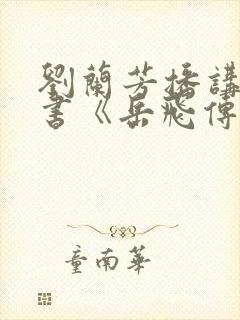 劉蘭芳播講
書《岳飛傳
童南華